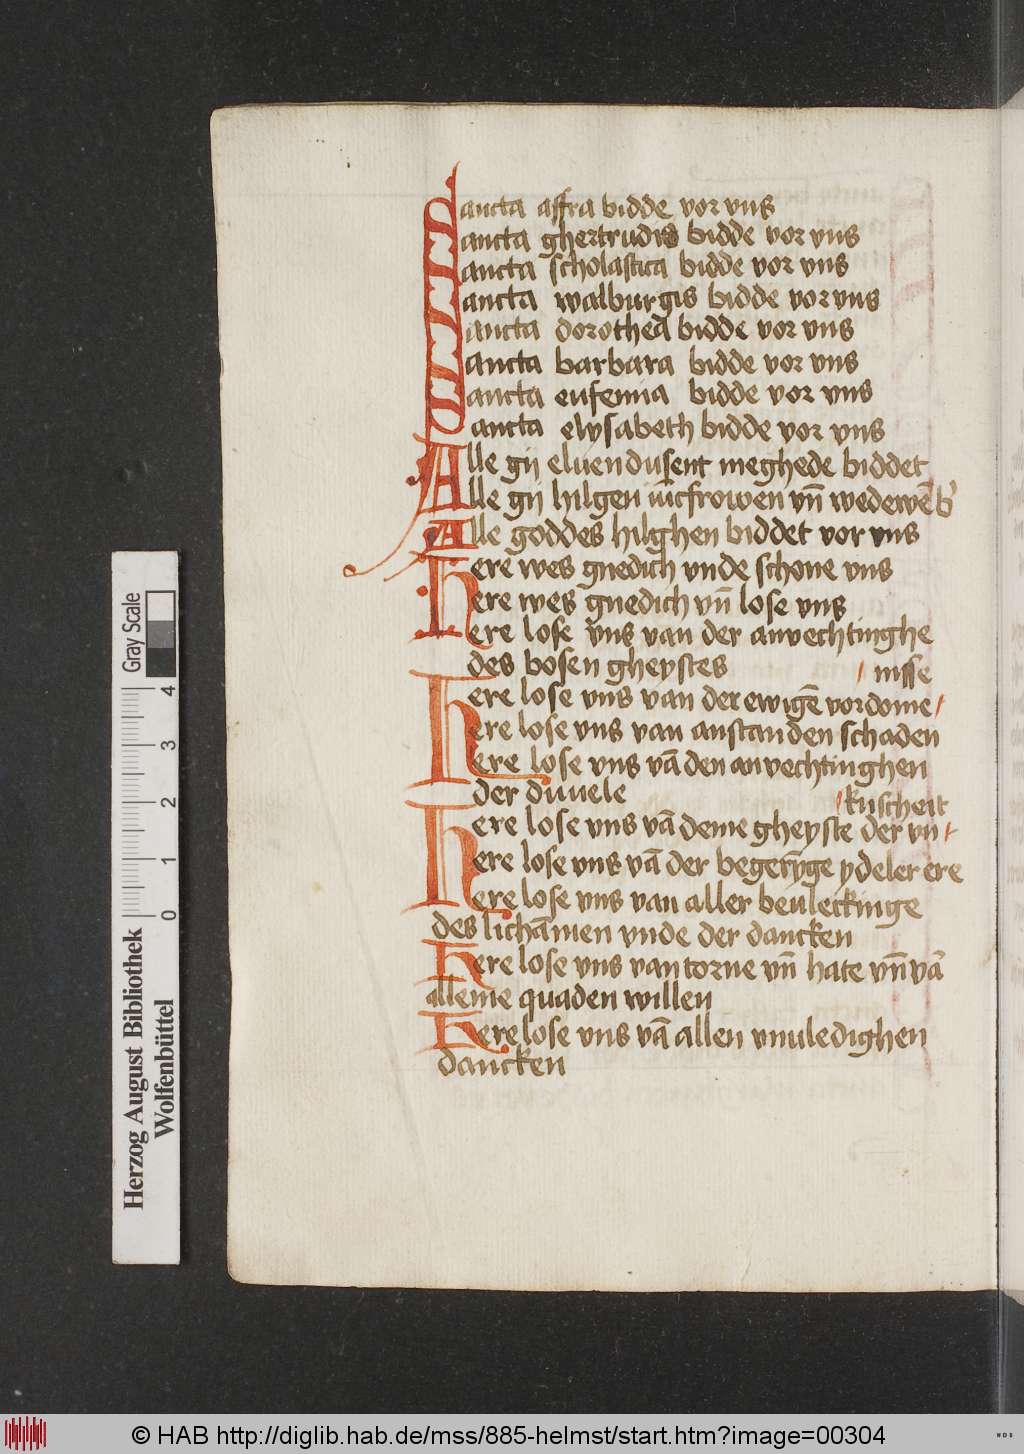 Sancta affra bidde vor vns
Sancta ghertrudis bidde vor vns
Sancta scholastica bidde vor vns
Sancta walburgis bidde vor vns
Sancta dorothea bidde vor vns
Sancta barbara bidde vor vns
Sancta eufemia bidde vor vns
Sancta elysabeth bidde vor vns
Alle gij eluen dusent meghede biddet
Alle gij hilgen iu̅cfrowen vn̅ wedewe̅ b'
Alle goddes hilghen biddet vor vns
Here wes gnedich vnde schone vns
Here wes gnedich vn̅ lose vns
Here lose vns van der anvechtinghe
des bosen gheystes
Here lose vns van der ewige̅ vordome/
/ nisse
Here lose vns van anstanden schaden
Here lose vns va̅ den anvechtinghen
der duuele
Here lose vns va̅ deme gheyste der vn/
/kuscheit
Here lose vns va̅ der begery̅ge ydeler ere
Here lose vns van aller beuleckinge
des licha̅men vnde der dancken
Here lose vns van torne vn̅ hate vn̅ va̅
alleme quaden willen
Here lose vns va̅ allen vnuledighen
dancken
Gray Scale
4 3 2 1 0
Herzog August Bibliothek
Wolfenbüttel
© HAB http://diglib.hab.de/mss/885-helmst/start.htm?image=00304